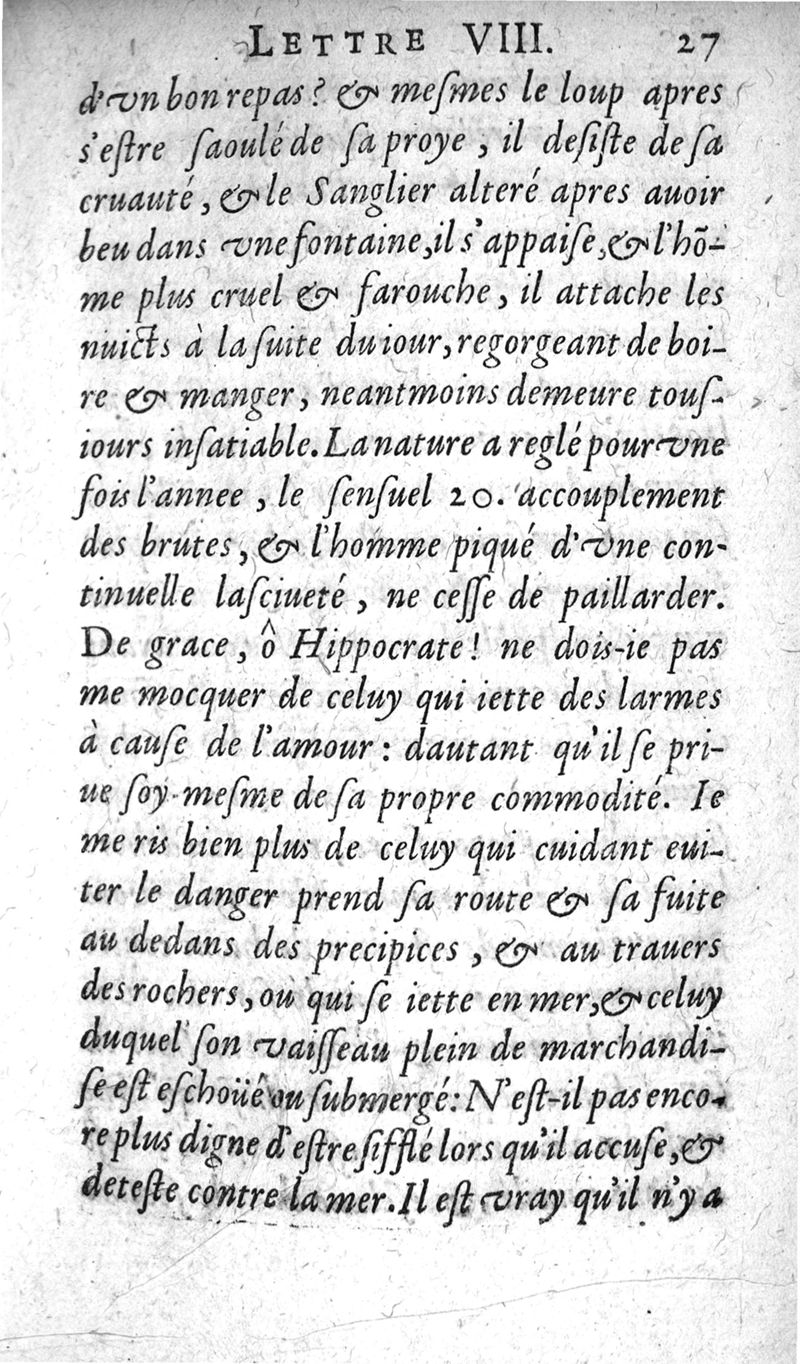 LETTRE VIII. 27
d'vn bon repas? & meſmes le loup apres
s'eſtre ſaoulé de ſa proye, il deſiſte de ſa
cruauté, & le Sanglier alteré apres auoir
beu dans vne fontaine, il s'appaiſe, & l'hõ-
me plus cruel & farouche, il attache les
nuicts à la ſuite du iour, regorgeant de boi-
re & manger, neantmoins demeure touſ-
iours inſatiable. La nature a reglé pour vne
fois l'annee, le ſenſuel 20. accouplement
des brutes, & l'homme piqué d'vne con-
tinuelle laſciueté, ne ceſſe de paillarder.
De grace, ô Hippocrate! ne dois-ie pas
me mocquer de celuy qui iette des larmes
à cauſe de l'amour: dautant qu'il ſe pri-
ue ſoy-meſme de ſa propre commodité. Ie
me ris bien plus de celuy qui cuidant eui-
ter le danger prend ſa route & ſa fuite
au dedans des precipices, & au trauers
des rochers, ou qui ſe iette en mer, & celuy
duquel ſon vaiſſeau plein de marchandi-
ſe eſt eſchoüé ou ſubmergé: N'eſt-il pas enco-
re plus digne d'eſtre ſifflé lors qu'il accuſe, &
deteſte contre la mer. Il eſt vray qu'il n'y a